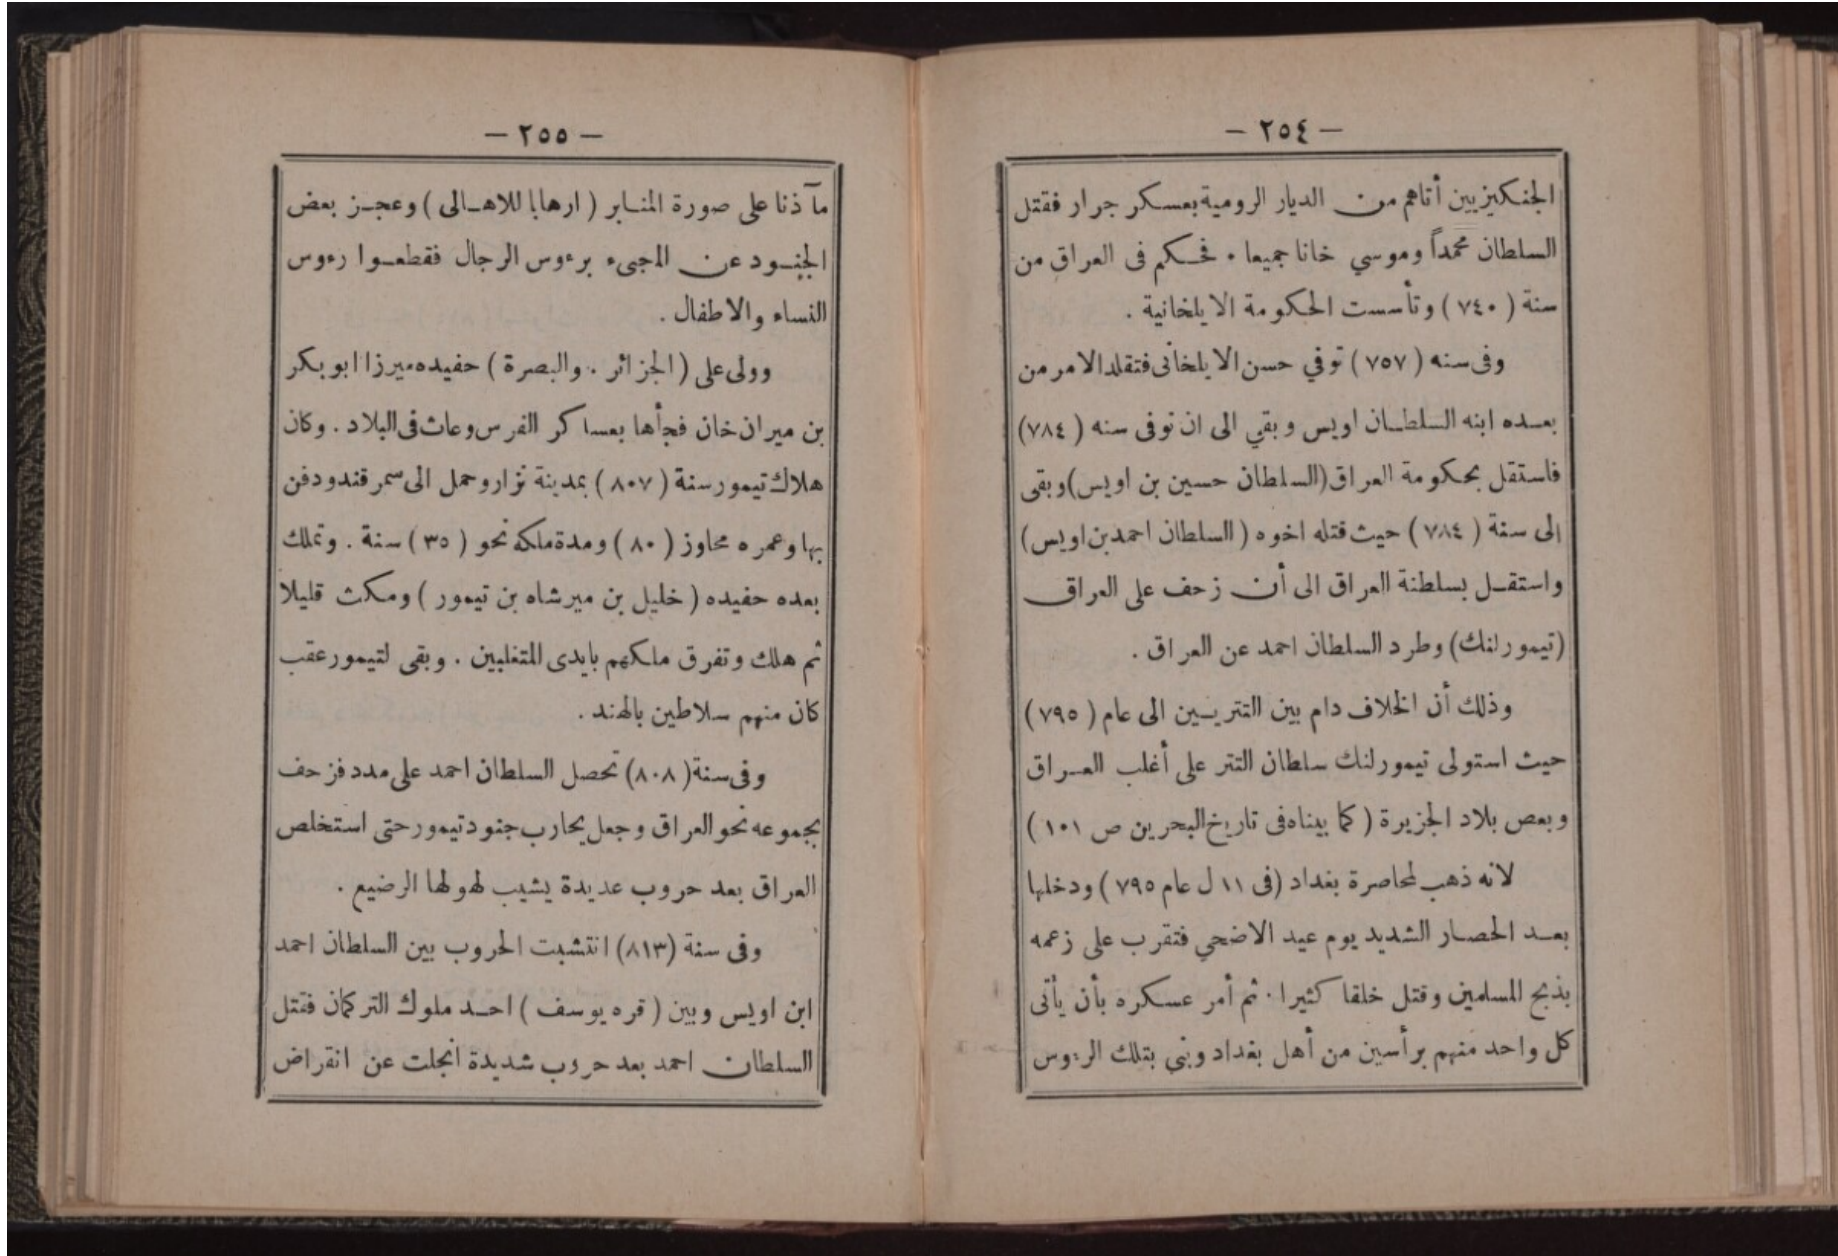 — ٢٥٤ —
الجنكيزيين أتاهم من الديار الرومية بعسكر جرار فقتل
السلطان محمداً وموسي خانا جميعا . فحكم فى العراق من
سنة ( ٧٤٠ ) وتأسست الحكومة الايلخانية .
وفى سنه ( ٧٥٧ ) توفي حسن الايلخانى فتقلد الامر من
بعده ابنه السلطان اويس وبقي الى ان توفى سنه ( ٧٨٤ )
فاستقل بحكومة العراق (السلطان حسين بن اويس) وبقى
الى سنة ( ٧٨٤ ) حيث قتله اخوه ( السلطان احمد بن اويس )
واستقل بسلطنة العراق الى أن زحف على العراق
(تيمورلنك) وطرد السلطان احمد عن العراق .
وذلك أن الخلاف دام بين التتريين الى عام ( ٧٩٥ )
حيث استولى تيمورلنك سلطان التتر على أغلب العراق
وبعص بلاد الجزيرة ( كما بيناه فى تاريخ البحرين ص ١٠١ )
لانه ذهب لمحاصرة بغداد (فى ١١ ل عام ٧٩٥ ) ودخلها
بعد الحصار الشديد يوم عيد الاضحي فتقرب على زعمه
بذبح المسلمين وقتل خلقا كثيرا . ثم أمر عسكره بأن يأتى
كل واحد منهم برأسين من أهل بغداد وبني بتلك الرءوس
— ٢٥٥ —
مآذنا على صورة المنابر ( ارهابا للاهالى ) وعجز بعض
الجنود عن المجىء برءوس الرجال فقطعوا رءوس
النساء والاطفال .
وولى على ( الجزائر . والبصرة ) حفيده ميرزا ابو بكر
بن ميران خان فجأها بعساكر الفرس وعاث فى البلاد . وكان
هلاك تيمور سنة ( ٨٠٧ ) بمدينة نزار وحمل الى سمرقند ودفن
بها وعمره محاوز ( ٨٠ ) ومدة ملكه نحو ( ٣٥ ) سنة . وتملك
بعده حفيده ( خليل بن ميرشاه بن تيمور ) ومكث قليلا
ثم هلك وتفرق ملكهم بايدى المتغلبين . وبقى لتيمور عقب
كان منهم سلاطين بالهند .
وفى سنة ( ٨٠٨ ) تحصل السلطان احمد على مدد فزحف
بجموعه نحو العراق وجعل يحارب جنود تيمور حتى استخلص
العراق بعد حروب عديدة يشيب لهولها الرضيع .
وفى سنة (٨١٣) انتشبت الحروب بين السلطان احمد
ابن اويس وبين ( قره يوسف ) احد ملوك التركمان فقتل
السلطان احمد بعد حروب شديدة انجلت عن انقراض